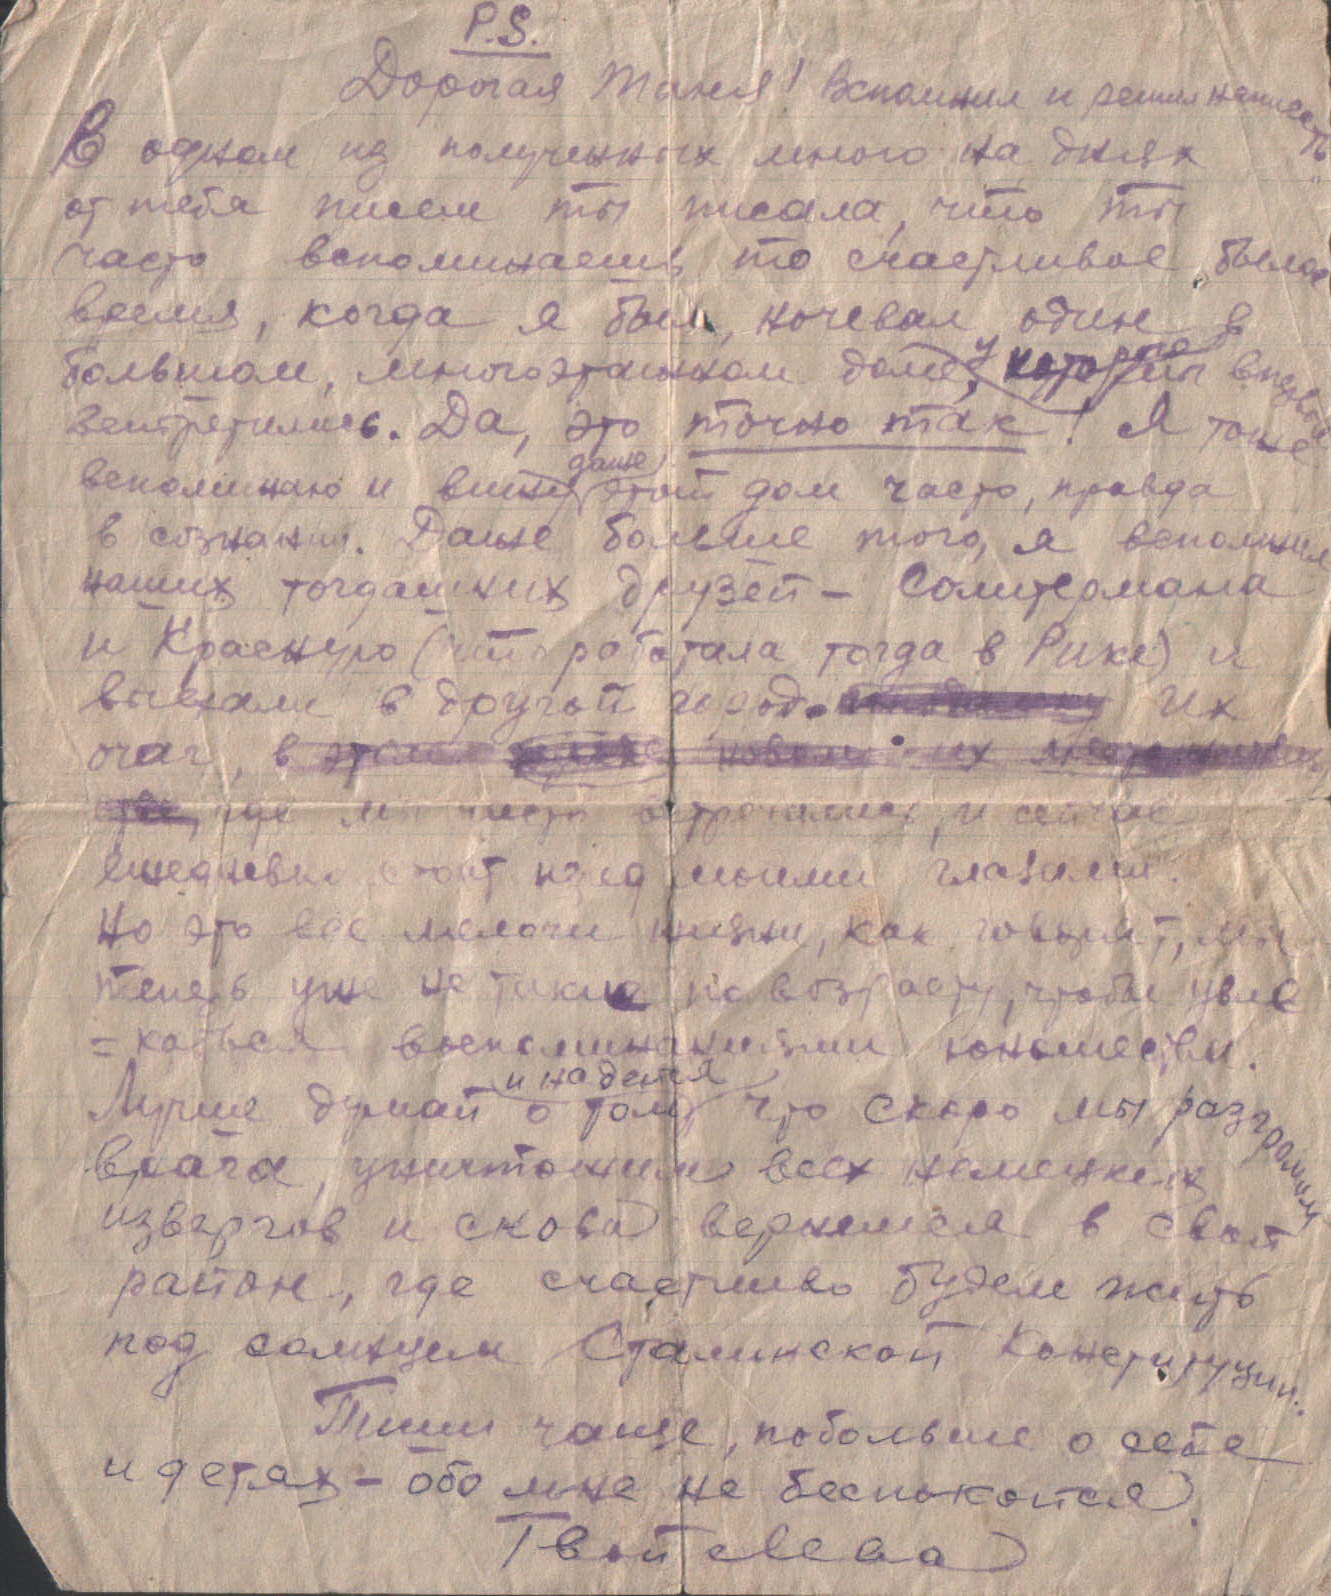 P.S.
Дорогая Таня! Вспомнил и решил написать.
В одном из полученных много на днях
от тебя писем ты писала, что ты
часто вспоминаешь то счастливое былое
время, когда я был, ночевал один в
большом, многоэтажном доме, у которого впервые
встретились. Да, это точно так! Я тоже
вспоминаю и вижу даже этот дом часто, правда
в сознании. Даже больше того, я вспомнил
наших тогдашних друзей – Солитермана
и Красную (что работала тогда в Рике) и
выехали в другой город. Их
очаг, в этом новом их
где мы часто встречались, и сейчас
ежедневно стоит перед моими глазами.
Но это все мелочи жизни, как говорят, мы
теперь уже не такие по возрасту, чтобы увле
=каться воспоминаниями юношества.
Лучше думай и надейся о том, что скоро мы разгромим
врага, уничтожим всех немецких
извергов и снова вернемся в свой
район, где счастливо будем жить
под солнцем Сталинской Конституции.
Пиши чаще, побольше о себе
и детях – обо мне не беспокойся.
Твой Лева